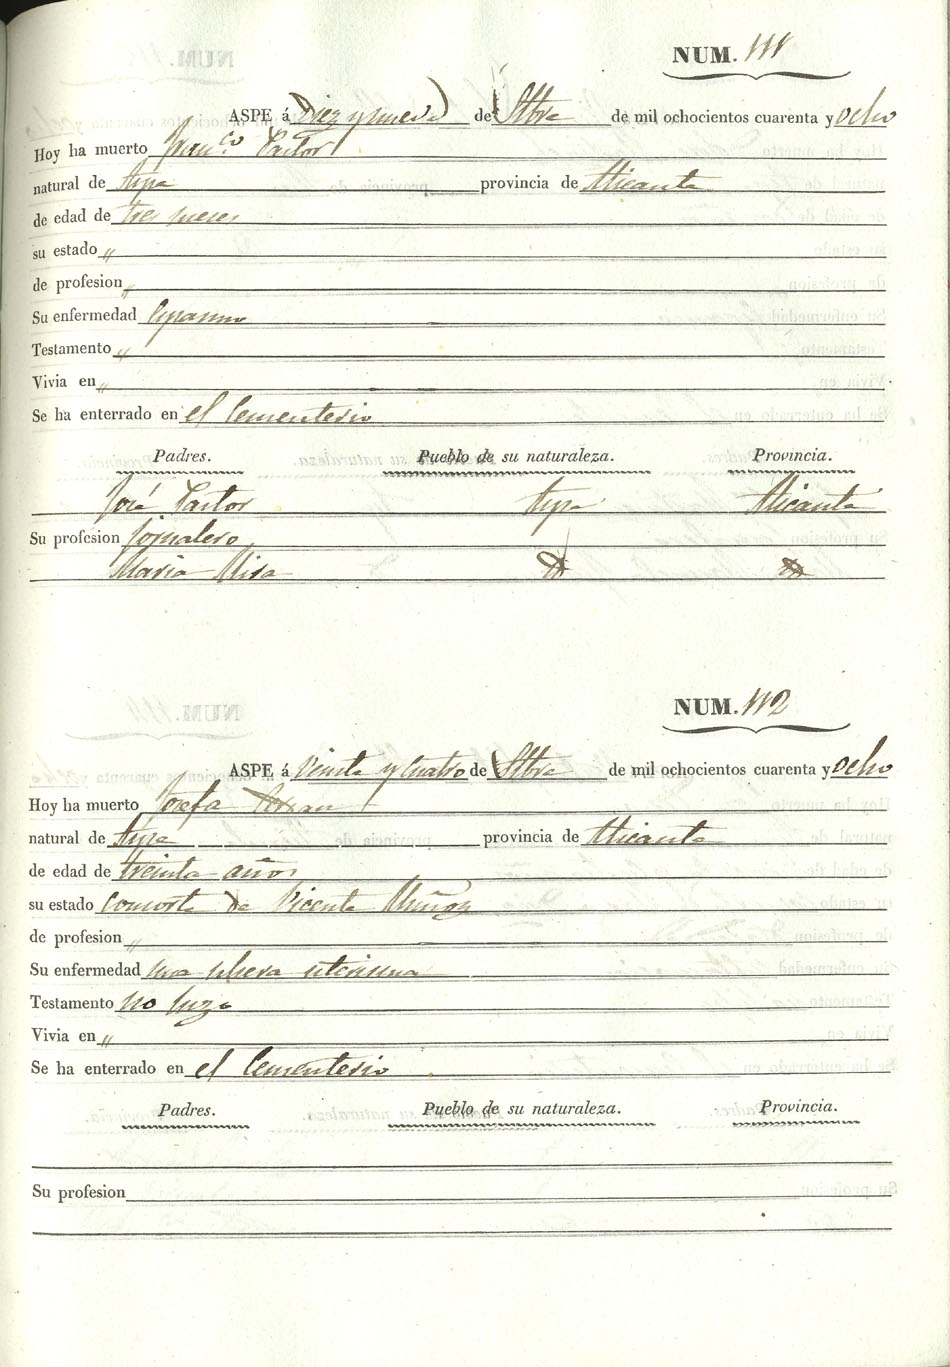 NUM. 111
ASPE á Diez y nueve de Stbre de mil ochocientos cuarenta y ocho
Hoy ha muerto Fran.co Pastor
natural de Aspe provincia de Alicante
de edad de tres meses
su estado "
de profesion "
Su enfermedad Espasmo
Testamento "
Vivia en "
Se ha enterrado en el Cementerio
Padres. Pueblo de su naturaleza. Provincia.
José Pastor Aspe Alicante
Su profesion Jornalero
Maria Mira
NUM. 112
ASPE á Veinte y cuatro de Stbre de mil ochocientos cuarenta y ocho
Hoy ha muerto Josefa
natural de Aspe provincia de Alicante
de edad de treinta años
su estado consorte de Vicente Muñoz
de profesion "
Su enfermedad una ulcera uterina
Testamento no hizo
Vivia en "
Se ha enterrado en el Cementerio
Padres. Pueblo de su naturaleza. Provincia.
Su profesion